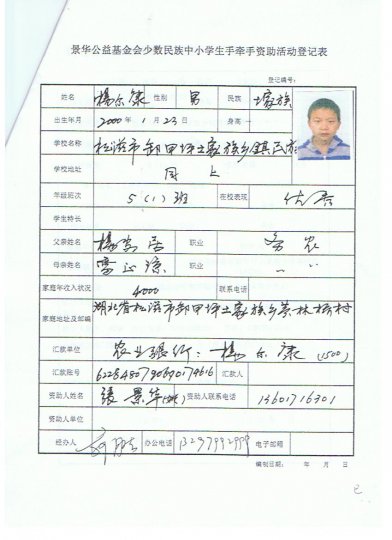 景华公益基金会少数民族中小学生手牵手资助活动登记表
登记编号：
姓名 杨尔康 性别 男 民族 土家族
出生年月 2000年1月23日 身高
学校名称 松滋市卸甲坪土家族乡镇民族
学校地址 同上
年级班次 5（1）班 在校表现 优秀
学生特长
父亲姓名 职业 务农
母亲姓名 职业 〃
家庭年收入状况 4000 联系电话
家庭地址及邮编 湖北省松滋市卸甲坪土家族乡黄林桥村
汇款单位 农业银行：杨尔康（1500）
汇款账号 汇款人
资助人姓名 张景华 资助人联系电话 13601716301
资助人单位
经办人 办公电话 13297992999 电子邮箱
编制日期： 年 月 日